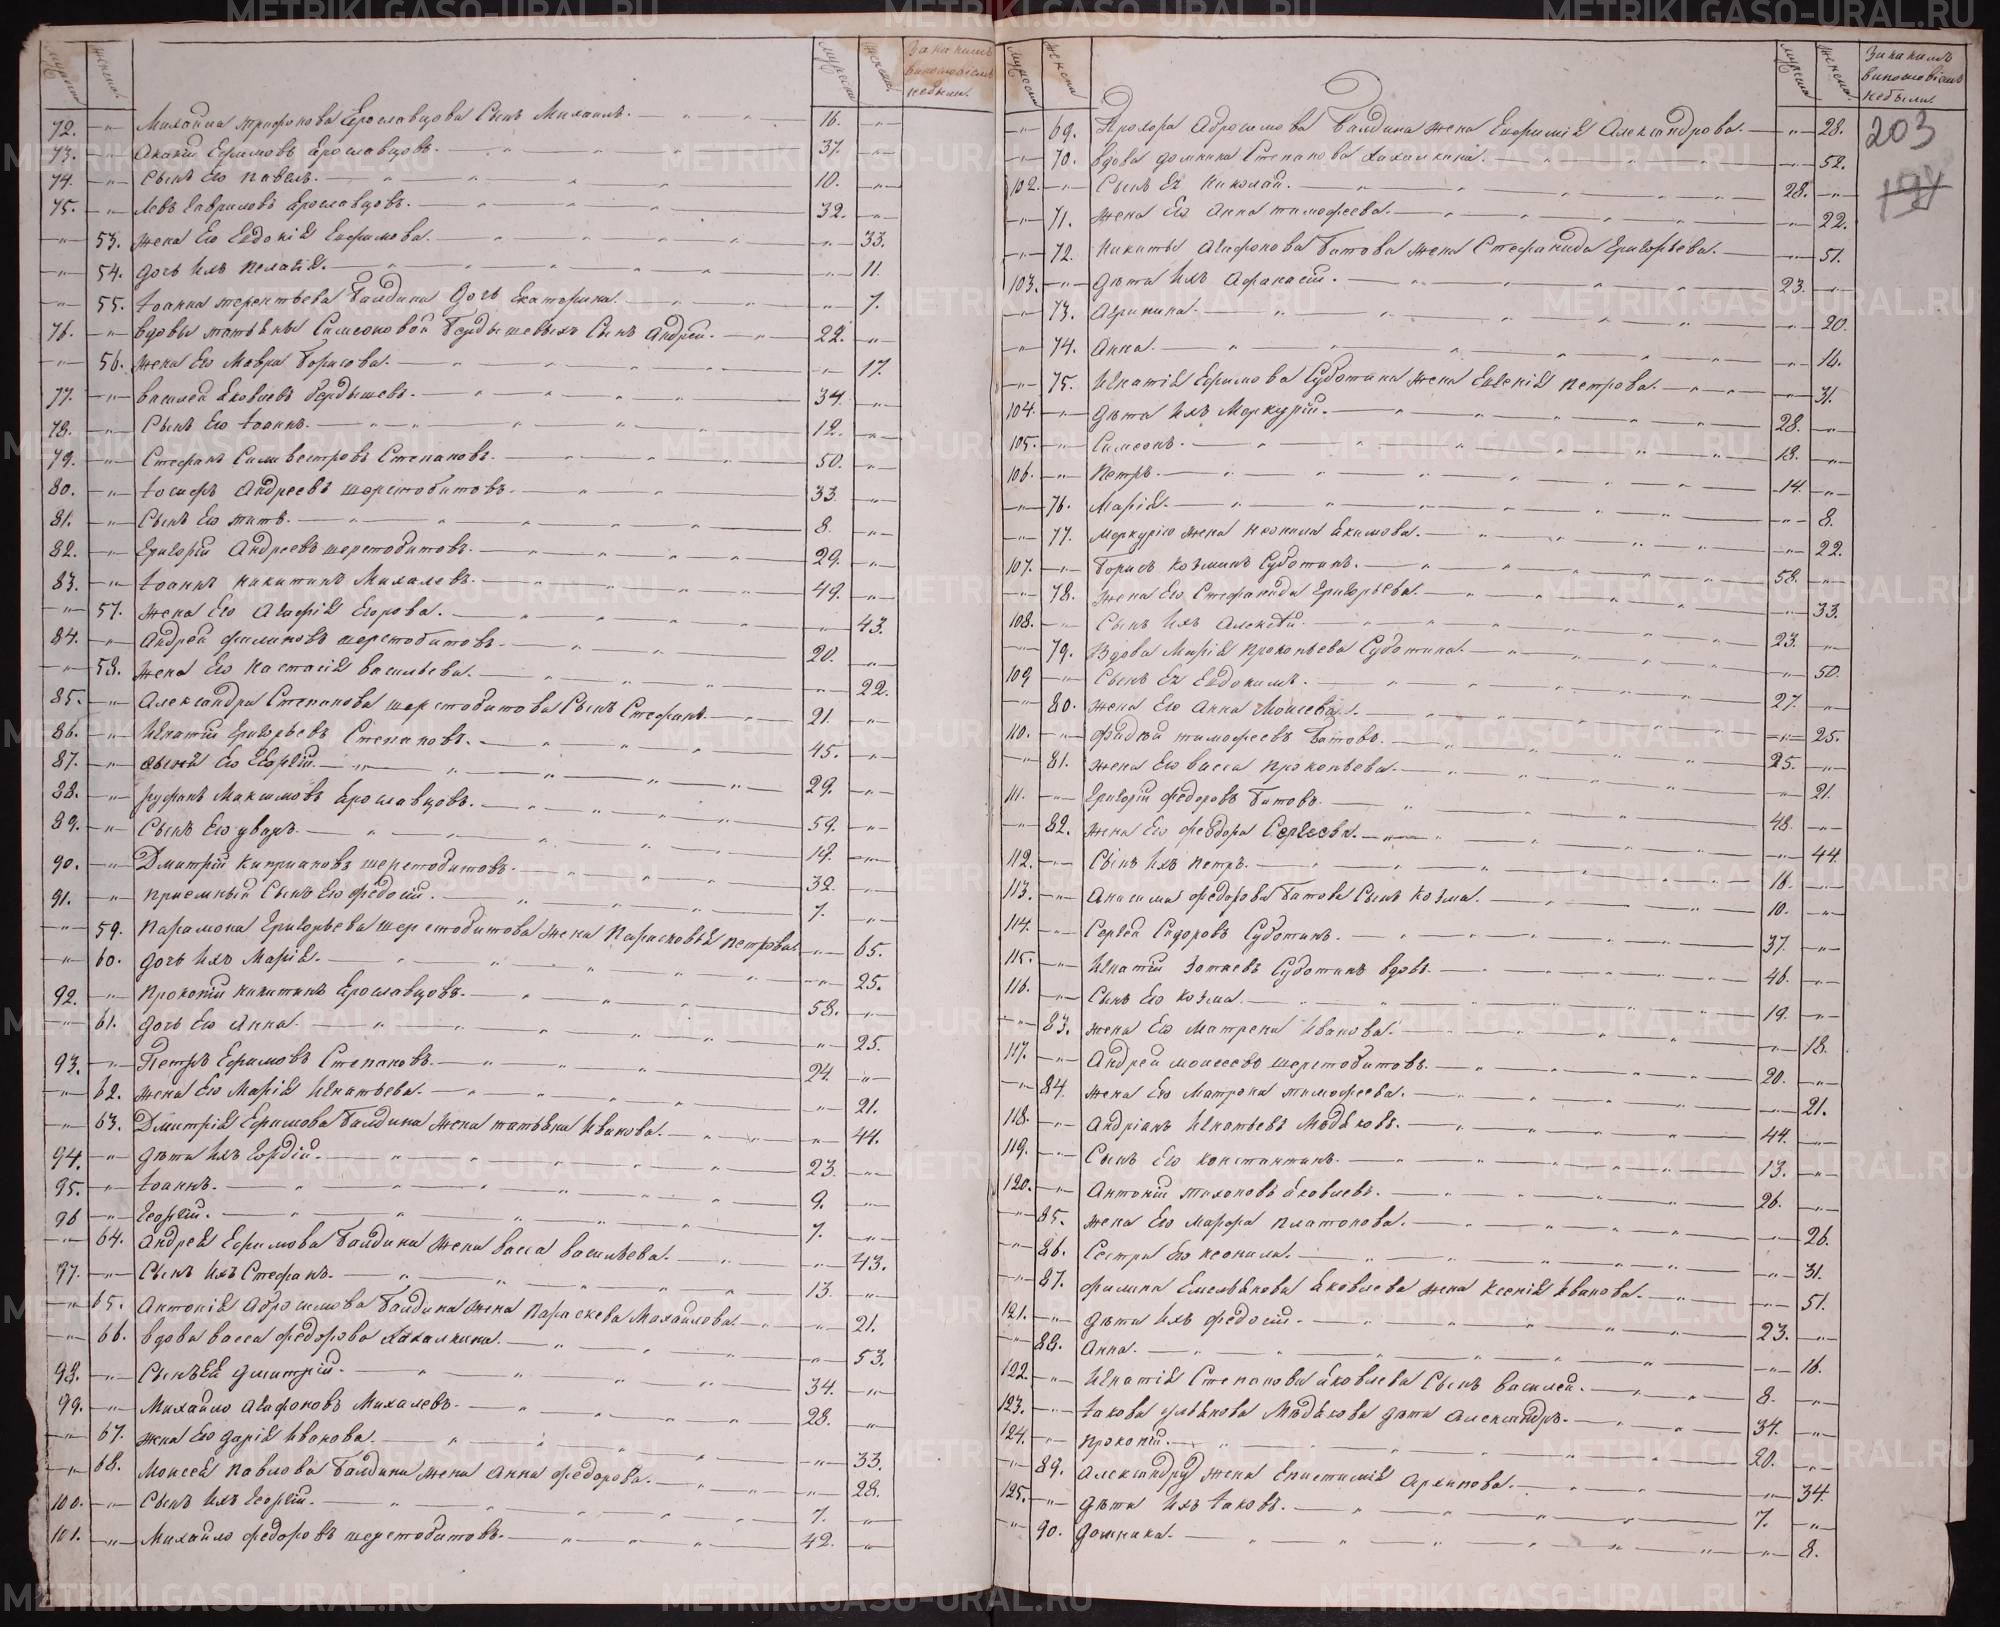 мужска женска мужска женска За какимъ виномъ исповеди не были.
72. „ Михайла Трифонова Ерославцова Сынъ Михаилъ. 16. „
73. „ Акакій Ефимовъ Ерославцовъ. 37. „
74. „ Сынъ Его Павелъ. 10. „
75. „ Левъ Гавриловъ Ерославцовъ. 32. „
„ 53. Жена Его Евдокія Ефимова. „ 33.
„ 54. Дочь Ихъ Пелагія. „ 11.
„ 55. Іоанна Терентьева Балдина Дочь Екатерина. „ 7.
76. „ Вдовы Татьяны Симеоновой Бердышевыхъ Сынъ Андрей. 22. „
„ 56. Жена Его Мавра Борисова. „ 17.
77. „ Василей Яковлевъ Бердышевъ. 34. „
78. „ Сынъ Его Іоаннъ. 12. „
79. „ Стефанъ Сильвестровъ Степановъ. 50. „
80. „ Іосифъ Андреевъ Шерстобитовъ. 33. „
81. „ Сынъ Его Титъ. 8. „
82. „ Григорій Андреевъ Шерстобитовъ. 29. „
83. „ Іоаннъ Никитинъ Михалевъ. 49. „
„ 57. Жена Его Агафія Егорова. „ 43.
84. „ Андрей Филиповъ Шерстобитовъ. 20. „
„ 58. Жена Его Настасія Васильева. „ 22.
85. „ Александра Степанова Шерстобитова Сынъ Стефанъ. 21. „
86. „ Игнатій Григорьевъ Степановъ. 45. „
87. „ Его Георгій. 29. „
88. „ Руфанъ Максимовъ Ерославцовъ. 59. „
89. „ Сынъ Его Уваръ. 19. „
90. „ Дмитрій Кипріановъ Шерстобитовъ. 32. „
91. „ Пріемный Сынъ Его Федосій. 7. „
„ 59. Парамона Григорьева Шерстобитова Жена Парасковья Петрова. „ 65.
„ 60. Дочь Ихъ Марія. „ 25.
92. „ Прокопій Никитинъ Ерославцовъ. 58. „
„ 61. Дочь Его Анна. „ 25.
93. „ Петръ Ефимовъ Степановъ. 24. „
„ 62. Жена Его Марія Игнатьева. „ 21.
„ 63. Дмитрія Ефимова Балдина Жена Татьяна Иванова. „ 44.
94. „ Дѣти Ихъ Гордій. 23. „
95. „ Іоаннъ. 9. „
96 „ Георгій. 7. „
„ 64. Андрея Ефимова Балдина Жена Васса Васильева. „ 43.
97. „ Сынъ Ихъ Стефанъ. 13. „
„ 65. Антонія Абросимова Балдина Жена Параскева Михайлова. „ 21.
„ 66. Вдова Васса Федорова Хахалкина. „ 53.
98. „ Сынъ Ея Дмитрій. 34. „
99. „ Михайло Агафоновъ Михалевъ. 28. „
„ 67. Жена Его Дарія Иванова. „ 33.
„ 68. Моисея Павлова Балдина Жена Анна Федорова. „ 28.
100. „ Сынъ Ихъ Георгій. 7. „
101. „ Михайло Федоровъ Шерстобитовъ. 42. „
мужска женска мужска женска За какимъ виномъ исповеди не были.
203
194
„ 69. Прохора Абросимова Балдина Жена Ефимія Александрова. „ 28.
„ 70. Вдова Домника Степанова Хахалкина. „ 52.
102. „ Сынъ Ея Николай. 28. „
„ 71. Жена Его Анна Тимофеева. „ 22.
„ 72. Никиты Агафонова Батова Жена Стефанида Григорьева. „ 51.
103. „ Дѣти Ихъ Афанасій. 23. „
„ 73. Агрипина. „ 20.
„ 74. Анна. „ 16.
„ 75. Игнатія Ефимова Суботина Жена Евгенія Петрова. „ 31.
104. „ Дѣти Ихъ Меркурій. 28. „
105. „ Симеонъ. 18. „
106. „ Петръ. 14. „
„ 76. Марія. „ 8.
„ 77. Меркурію Жена Неонила Екимова. „ 22.
107. „ Борисъ Козминъ Суботинъ. 58. „
„ 78. Жена Его Стефанида Григорьева. „ 33.
108. „ Сынъ Ихъ Алексѣй. 23. „
„ 79. Вдова Марія Прокопьева Суботина. „ 50.
109 „ Сынъ Ея Евдокимъ. 27. „
„ 80. Жена Его Анна Моисеева. „ 25.
110. „ Фадей Тимофеевъ Батовъ. 25. „
„ 81. Жена Его Васса Прокопьева. „ 21.
111. „ Григорій Федоровъ Батовъ. 48. „
„ 82. Жена Его Федора Сергеева. „ 44.
112. „ Сынъ Ихъ Петръ. 16. „
113. „ Анисима Федорова Батова Сынъ Козма. 10. „
114. „ Сергей Сидоровъ Суботинъ. 37. „
115. „ Игнатій Зотеевъ Суботинъ вдовъ. 46. „
116. „ Сынъ Его Козма. 19. „
„ 83. Жена Его Матрена Иванова. „ 18.
117. „ Андрей Моисеевъ Шерстобитовъ. 20. „
„ 84. Жена Его Матрона Тимофеева. „ 21.
118. „ Андріанъ Игнатьевъ Мѣдяковъ. 44. „
119. „ Сынъ Его Константинъ. 13. „
120. „ Антоній Тихоновъ Яковлевъ. 26. „
„ 85. Жена Его Марфа Платонова. „ 26.
„ 86. Сестра Его Неонила. „ 31.
„ 87. Филипа Емельянова Яковлева Жена Ксенія Иванова. „ 51.
121. „ Дѣти Ихъ Федосій. 23. „
„ 88. Анна. „ 16.
122. „ Игнатія Степанова Яковлева Сынъ Василей. 8. „
123. „ Іакова Ульянова Мѣдякова Дѣти Александръ. 34. „
124. „ Прокопій. 20. „
„ 89. Александру Жена Епистимія Архипова. „ 34.
125. „ Дѣти Ихъ Іаковъ. 7. „
„ 90. Домника. „ 8.
METRIKI.GASO-URAL.RU